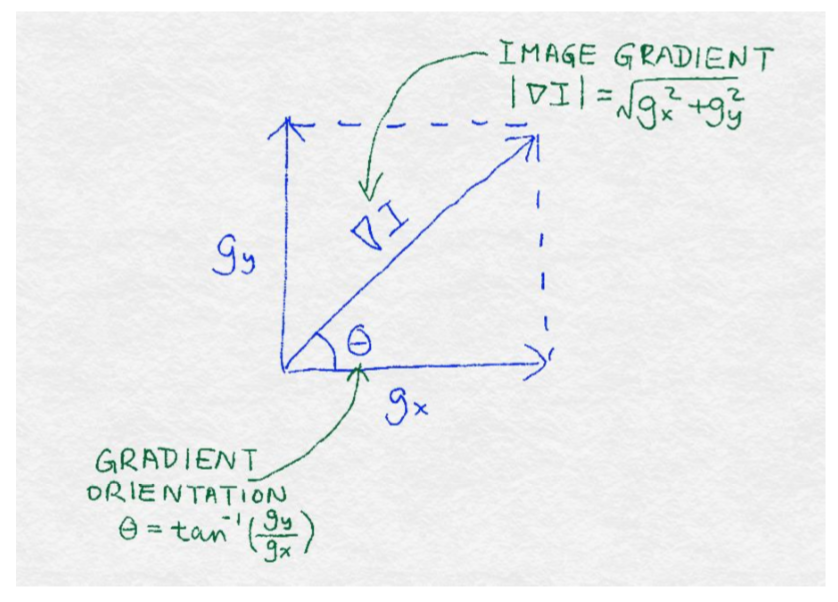 IMAGE GRADIENT
|∇I| = √(gx² + gy²)
∇I
gy
θ
gx
GRADIENT
ORIENTATION
θ = tan⁻¹(gy/gx)